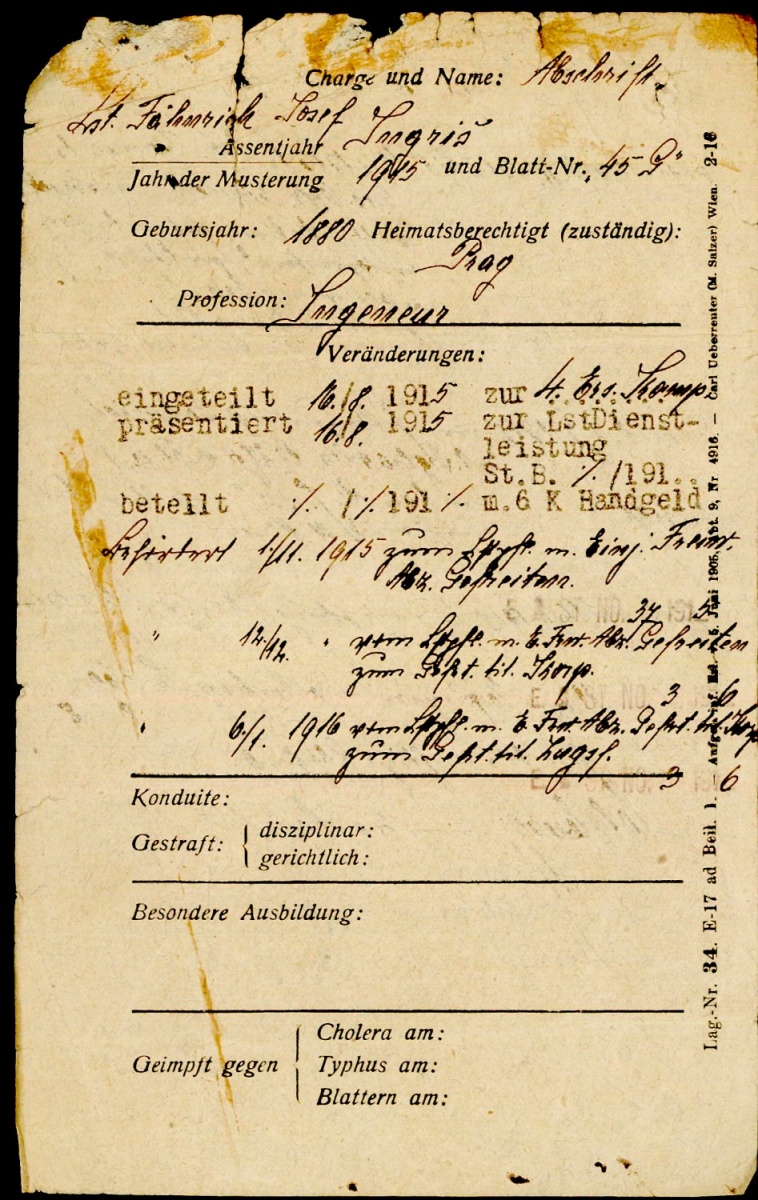 Charge und Name: Abschrift.
Lst. Fähnrich Josef
Ingriš
Assentjahr
Jahr der Musterung 1915 und Blatt-Nr. „45 G“
Geburtsjahr: 1880 Heimatsberechtigt (zuständig):
Prag
Profession: Ingeneur
Veränderungen:
eingeteilt 16./8. 1915 zur 4. Ers. Komp.
präsentiert 16.8. 1915 zur LstDienst-
leistung
St.B. ·/. /191..
betellt ·/. /·/. 191 ·/. m.6 K Handgeld
Befördert 1./11. 1915 zum m. Einj. Freiw.
Abz. Gefreiten.
37 5
" 12./12. " vom m. E. Frw. Abz. Gefreiten
zum Gefrt. tit. Korp.
3 6
" 6./1. 1916 vom m. E. Frw. Abz. Gefrt. tit. Korp
zum Gefrt. tit. Zugsf.
3 6
Konduite:
Gestraft: disziplinar:
gerichtlich:
Besondere Ausbildung:
Geimpft gegen Cholera am:
Typhus am:
Blattern am:
Lag.-Nr. 34. E-17 ad Beil. 1. — Juni 1905, Abt. 9, Nr. 4916. — Carl Ueberreuter (M. Salzer) Wien. 2-16